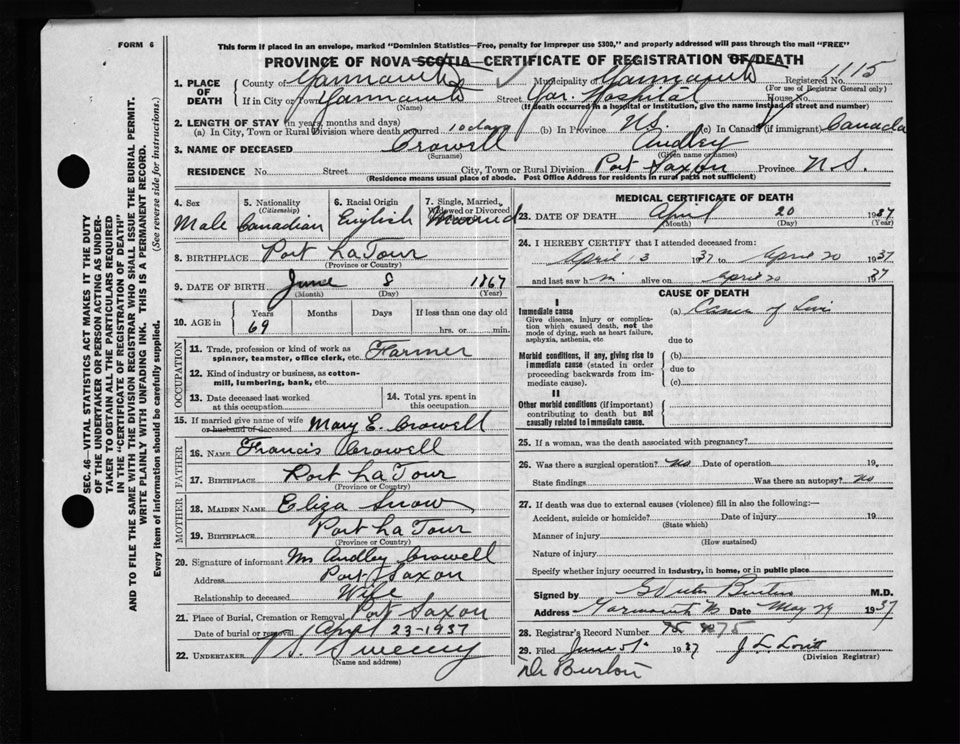 FORM 6
This form if placed in an envelope, marked "Dominion Statistics—Free, penalty for improper use $300," and properly addressed will pass through the mail "FREE"
PROVINCE OF NOVA SCOTIA—CERTIFICATE OF REGISTRATION OF DEATH
1. PLACE OF DEATH County of Yarmouth Municipality of Yarmouth Registered No. 1115
(For use of Registrar General only)
If in City or Town Yarmouth Street Yar. Hospital House No.
(Name) (If death occurred in a hospital or institution, give the name instead of street and number)
2. LENGTH OF STAY (in years, months and days)
(a) In City, Town or Rural Division where death occurred 10 days (b) In Province N.S. (c) In Canada (if immigrant) Canada
3. NAME OF DECEASED Crowell Audley
(Surname) (Given name or names)
RESIDENCE No. Street City, Town or Rural Division Port Saxon Province N.S.
(Residence means usual place of abode. Post Office Address for residents in rural parts not sufficient)
4. Sex Male
5. Nationality (Citizenship) Canadian
6. Racial Origin English
7. Single, Married, Widowed or Divorced Married
8. BIRTHPLACE Port La Tour
(Province or Country)
9. DATE OF BIRTH June 8 1867
(Month) (Day) (Year)
10. AGE in Years Months Days If less than one day old
69 hrs. or min.
OCCUPATION
11. Trade, profession or kind of work as spinner, teamster, office clerk, etc. Farmer
12. Kind of industry or business, as cotton-mill, lumbering, bank, etc.
13. Date deceased last worked at this occupation
14. Total yrs. spent in this occupation
15. If married give name of wife or husband of deceased Mary E. Crowell
FATHER
16. NAME Francis Crowell
17. BIRTHPLACE Port La Tour
(Province or Country)
MOTHER
18. MAIDEN NAME Eliza Snow
19. BIRTHPLACE Port La Tour
(Province or Country)
20. Signature of informant Mrs Audley Crowell
Address Port Saxon
Relationship to deceased Wife
21. Place of Burial, Cremation or Removal Port Saxon
Date of burial or removal April 23-1937
22. UNDERTAKER Sweeny
(Name and address)
MEDICAL CERTIFICATE OF DEATH
23. DATE OF DEATH April 20 1937
(Month) (Day) (Year)
24. I HEREBY CERTIFY that I attended deceased from:
April 13 1937 to April 20 1937
and last saw him alive on April 20 1937
CAUSE OF DEATH
I
Immediate cause
Give disease, injury or complication which caused death, not the mode of dying, such as heart failure, asphyxia, asthenia, etc
(a) Cancer of
due to
Morbid conditions, if any, giving rise to immediate cause (stated in order proceeding backwards from immediate cause).
(b)
due to
(c)
II
Other morbid conditions (if important) contributing to death but not causally related to immediate cause.
25. If a woman, was the death associated with pregnancy?
26. Was there a surgical operation? No Date of operation 19
State findings Was there an autopsy? No
27. If death was due to external causes (violence) fill in also the following:—
Accident, suicide or homicide? Date of injury 19
(State which)
Manner of injury
(How sustained)
Nature of injury
Specify whether injury occurred in industry, in home, or in public place
Signed by Burton M.D.
Address Yarmouth NS Date May 29 1937
28. Registrar's Record Number 75
29. Filed June 1937 J L Lovitt
(Division Registrar)
Dr Burton
SEC. 46—VITAL STATISTICS ACT MAKES IT THE DUTY
OF THE UNDERTAKER OR PERSON ACTING AS UNDER-
TAKER TO OBTAIN ALL THE PARTICULARS REQUIRED
IN THE "CERTIFICATE OF REGISTRATION OF DEATH"
AND TO FILE THE SAME WITH THE DIVISION REGISTRAR WHO SHALL ISSUE THE BURIAL PERMIT.
WRITE PLAINLY WITH UNFADING INK. THIS IS A PERMANENT RECORD.
Every item of information should be carefully supplied. (See reverse side for instructions.)